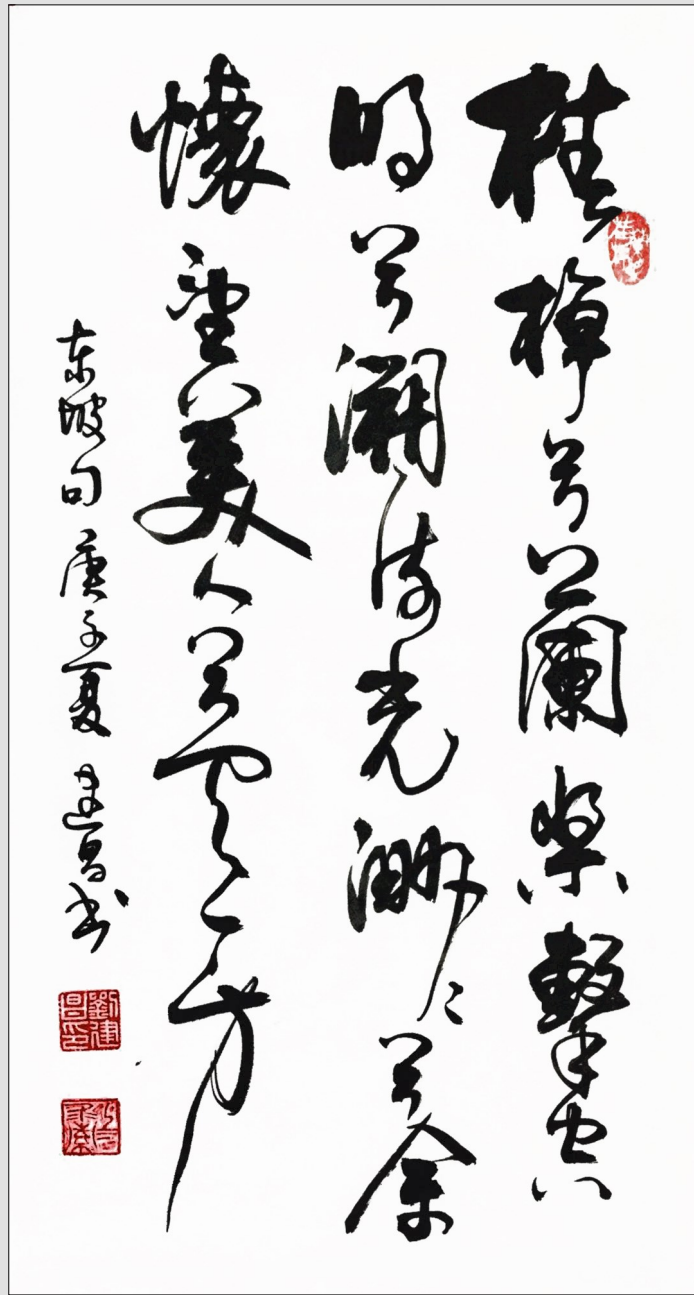 桂棹兮兰蘭槳擊空
明兮溯流光渺渺兮余
懷望美人兮天一方
东坡句 庚子夏 建昌书
劉建昌印